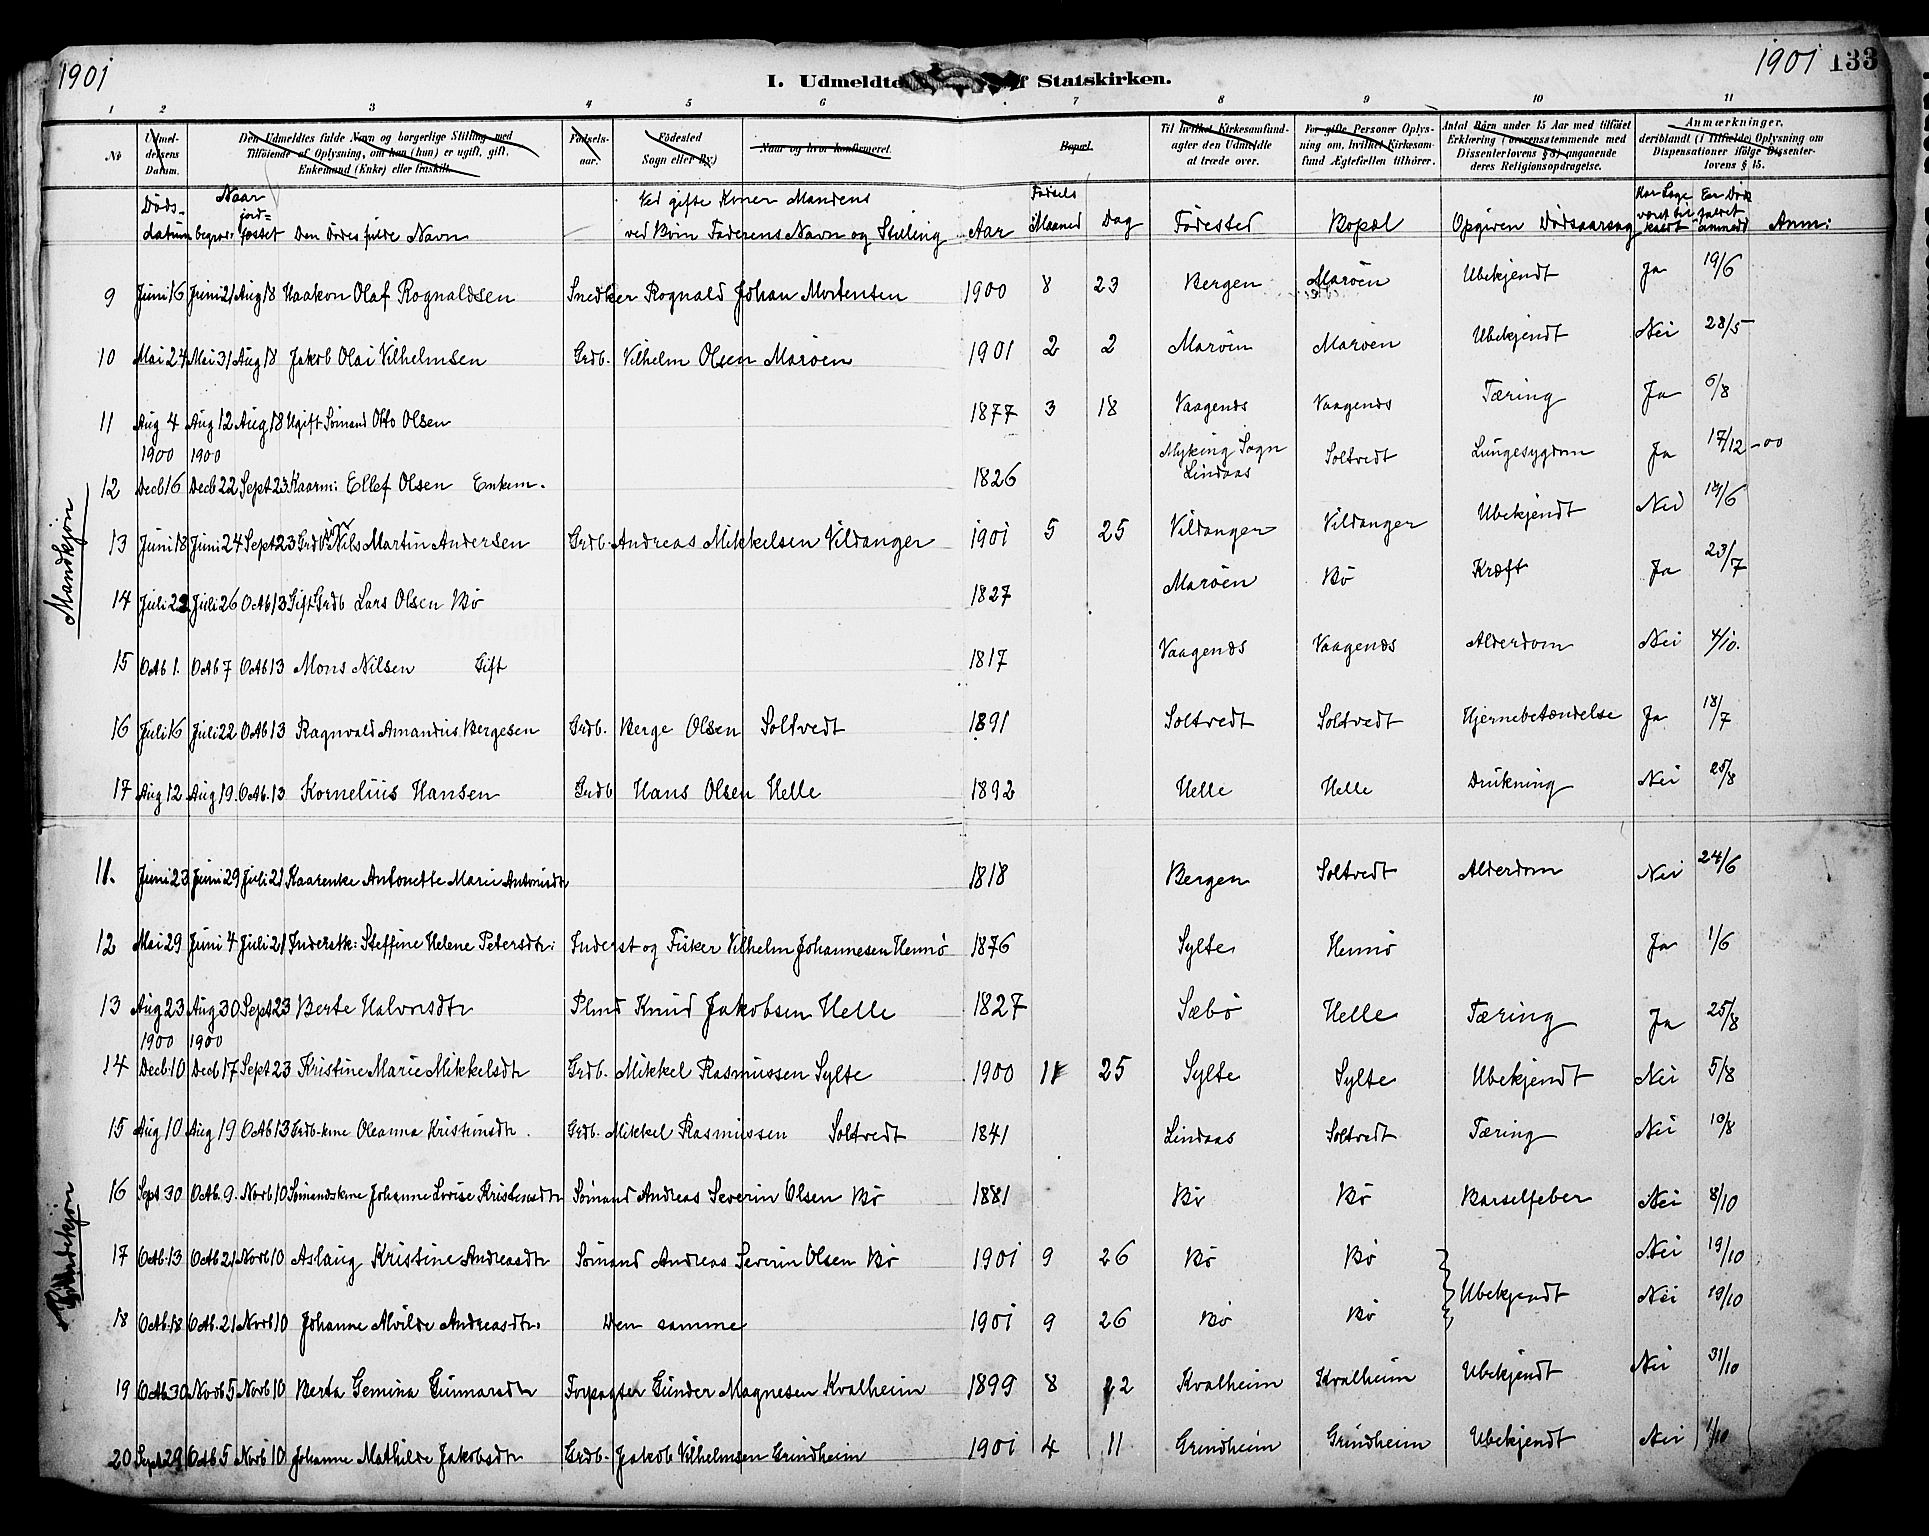 1901
I. Udmeldte
f Statskirken.
1901 133
1 2 3 4 5 6 7 8 9 10 11
No
Udmel-
delsens
Datum.
Den Udmeldtes fulde Navn og borgerlige Stilling med
Tilføiende af Oplysning, om han (hun) er ugift, gift,
Enkemand (Enke) eller fraskilt.
Fødsels-
aar.
Fødested
Sogn eller By)
Naar og hvor konfirmeret.
Bopæl.
Til hvilket Kirkesamfund-
agter den Udmeldte
at træde over.
For gifte Personer Oplys-
ning om, hvilket Kirkesam-
fund Ægtefællen tilhører.
Antal Børn under 15 Aar med tilføiet
Erklæring (overensstemmende med
Dissenterlovens § 8) angaaende
deres Religionsopdragelse.
Anmærkninger,
deriblandt (i Tilfælde) Oplysning om
Dispensationer ifølge Dissenter-
lovens § 15.
Døds-
datum
Naar
begrav: jord-
fæstet
Den Dødes fulde Navn
Ved gifte Koner Mandens
ved Børn Faderens Navn og Stilling
Fødsels
Aar Maaned Dag
Fødested
Bopæl
Opgiven Dødsaarsag
Har Læge
været til
kaldt
Er Død-
faldet
anmeldt
Anm:
9 Juni 16 Juni 21 Aug 18 Haakon Olaf Rognaldsen Snedker Rognald Johan Mortensen 1900 8 23 Bergen Marøen Ubekjendt Ja 19/6
10 Mai 24 Mai 31 Aug 18 Jakob Olai Vilhelmsen Grdb. Vilhelm Olsen Marøen 1901 2 2 Marøen Marøen Ubekjendt Nei 28/5
11 Aug 4 Aug 12 Aug 18 Ugift Sømand Otto Olsen 1877 3 18 Vaagenes Vaagenes Tæring Ja 6/8
1900 1900
12 Decb 16 Decb 22 Sept 23 Kaarm: Ellef Olsen Enkem. 1826 Myking Sogn Lindaas Soltvedt Lungesygdom Ja 17/12-00
13 Juni 18 Juni 24 Sept 23 Grdbr Nils Martin Andersen Grdb. Andreas Mikkelsen Vildanger 1901 5 25 Vildanger Vildanger Ubekjendt Nei 19/6
14 Juli 22 Juli 26 Octb 13 Gift Grdb Lars Olsen Bø 1827 Marøen Bø Kræft Ja 23/7
15 Octb 1. Octb 7 Octb 13 Mons Nilsen Gift 1817 Vaagenes Vaagenes Alderdom Nei 4/10.
16 Juli 16 Juli 22 Octb 13 Ragnvald Amandus Bergesen Grdb. Berge Olsen Soltvedt 1891 Soltvedt Soltvedt Hjernebetændelse Ja 18/7
17 Aug 12 Aug 19. Octb. 13 Kornelius Hansen Grdb Hans Olsen Helle 1892 Helle Helle Drukning Nei 25/8
Mandkjøn
11. Juni 23 Juni 29 Juli 21 Kaarenke Antonette Marie Antonisdtr 1818 Bergen Soltvedt Alderdom Nei 24/6
12 Mai 29 Juni 4 Juli 21 Inderstk: Steffine Helene Petersdtr: Inderst og Fisker Vilhelm Johannesen Hennø 1876 Sylte Hennø Ja 1/6
13 Aug 23 Aug 30 Sept 23 Berte Halvorsdtr Plmd Knud Jakobsen Helle 1827 Sæbø Helle Tæring Ja 25/8
1900 1900
14 Decb. 10 Decb 17 Sept 23 Kristine Marie Mikkelsdtr Grdb. Mikkel Rasmussen Sylte 1900 11 25 Sylte Sylte Ubekjendt Nei 5/8
15 Aug 10 Aug 19 Octb 13 Grdb-kone Oleanna Kristensdtr. Grdb. Mikkel Rasmussen Soltvedt 1841 Lindaas Soltvedt Tæring Nei 19/8
16 Sept. 30 Octb. 9. Novb 10 Sømandskone Johanne Lovise Kristensdtr Sømand Andreas Severin Olsen Bø 1881 Bø Bø Barselfeber Nei 8/10
17 Octb. 13 Octb 21 Novb 10 Aslaug Kristine Andreasdtr Sømand Andreas Severin Olsen Bø 1901 9 26 Bø Bø Ubekjendt Nei 19/10
18 Octb. 18 Octb. 21 Novb 10 Johanne Alvilde Andreasdtr. Den samme 1901 9 26 Bø Bø Nei 19/10
19 Octb 30 Novb 5 Novb 10 Berta Gemina Gunnarsdtr Forpagter Gunder Magnesen Kvalheim 1899 8 12 Kvalheim Kvalheim Ubekjendt Nei 31/10
20 Sept 29 Octb 5 Novb 10 Johanne Mathilde Jakobsdtr Grdb. Jakob Vilhelmsen Grindheim 1901 4 11 Grindheim Grindheim Ubekjendt Nei 1/10
Kvindekjøn